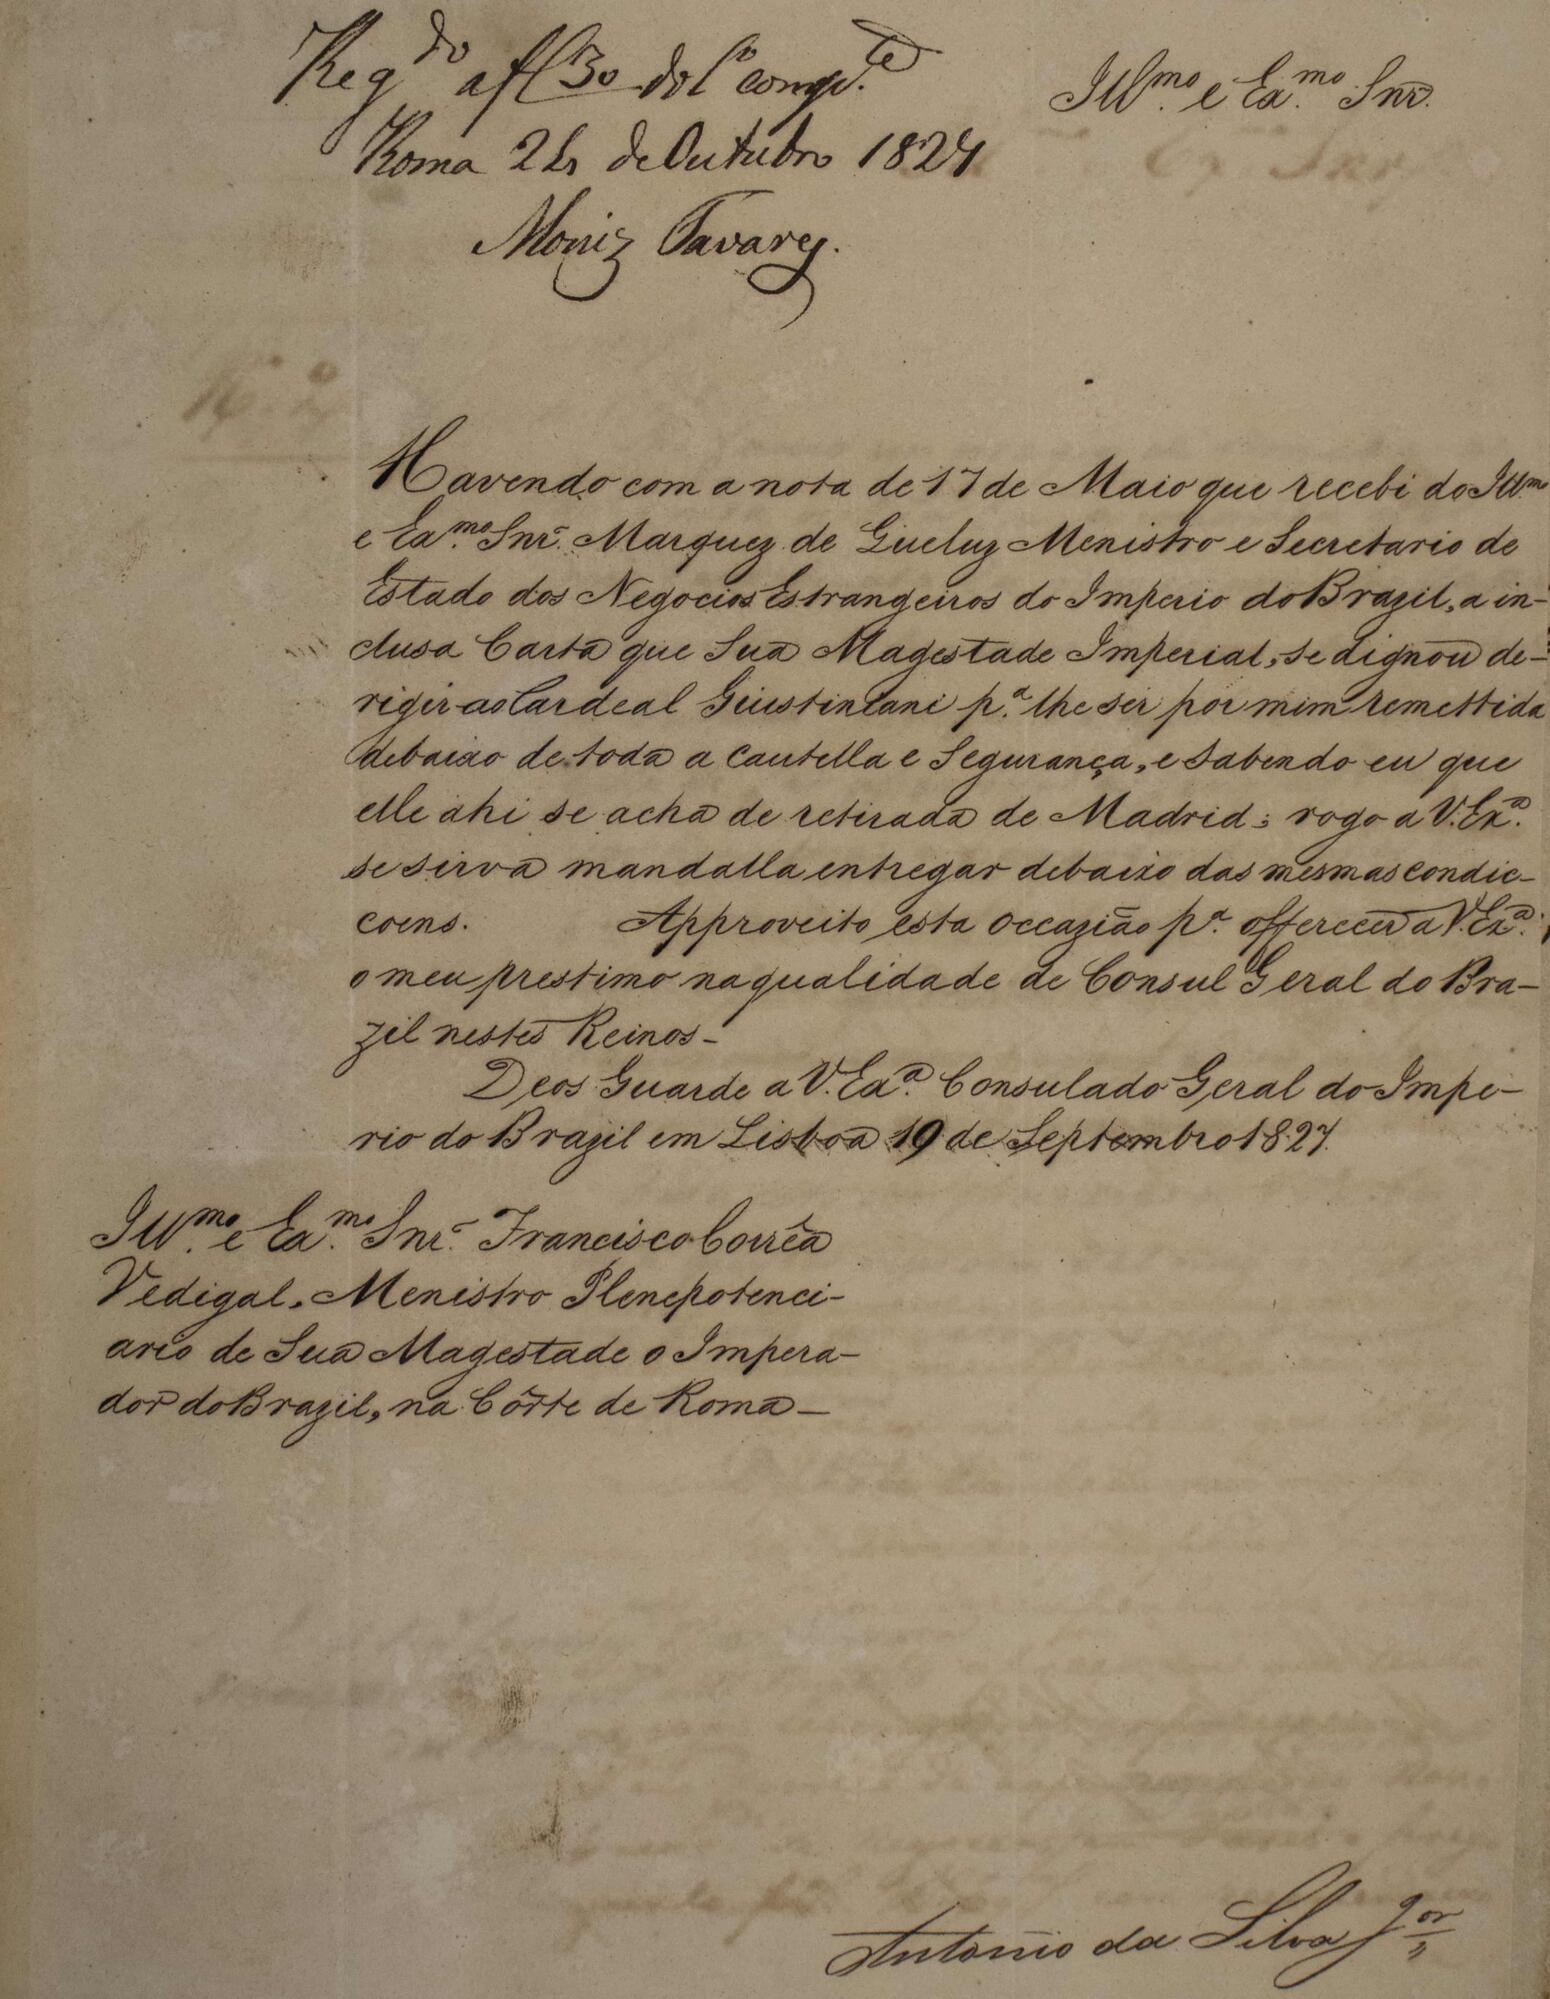 Reg.do a fl 30 do L.o comp.te
Roma 24 de Outubro 1827
Moniz Tavares.
Ill.mo e Ex.mo Snr.
Havendo com a nota de 17 de Maio que recebi do Ill.mo
e Ex.mo Snr. Marquez de Queluz Menistro e Secretario de
Estado dos Negocios Estrangeiros do Imperio do Brazil, a in-
clusa Carta que Sua Magestade Imperial, se dignou de-
rigir ao Cardeal Giustiniani p.a lhe ser por mim remettida
debaixo de toda a Cautella e Segurança, e sabendo eu que
elle ahi se acha de retirada de Madrid; rogo a V. Ex.a
se sirva mandalla entregar debaixo das mesmas condic-
coens. Approveito esta occazião p.a offerecer a V. Ex.a
o meu prestimo na qualidade de Consul Geral do Bra-
zil nestes Reinos-
Deos Guarde a V. Ex.a Consulado Geral do Impe-
rio do Brazil em Lisboa 19 de Septembro 1827.
Ill.mo e Ex.mo Snr. Francisco Corrêa
Vedigal, Menistro Plenepotenci-
ario de Sua Magestade o Impera-
dor do Brazil, na Côrte de Roma-
Antonio da Silva J.or